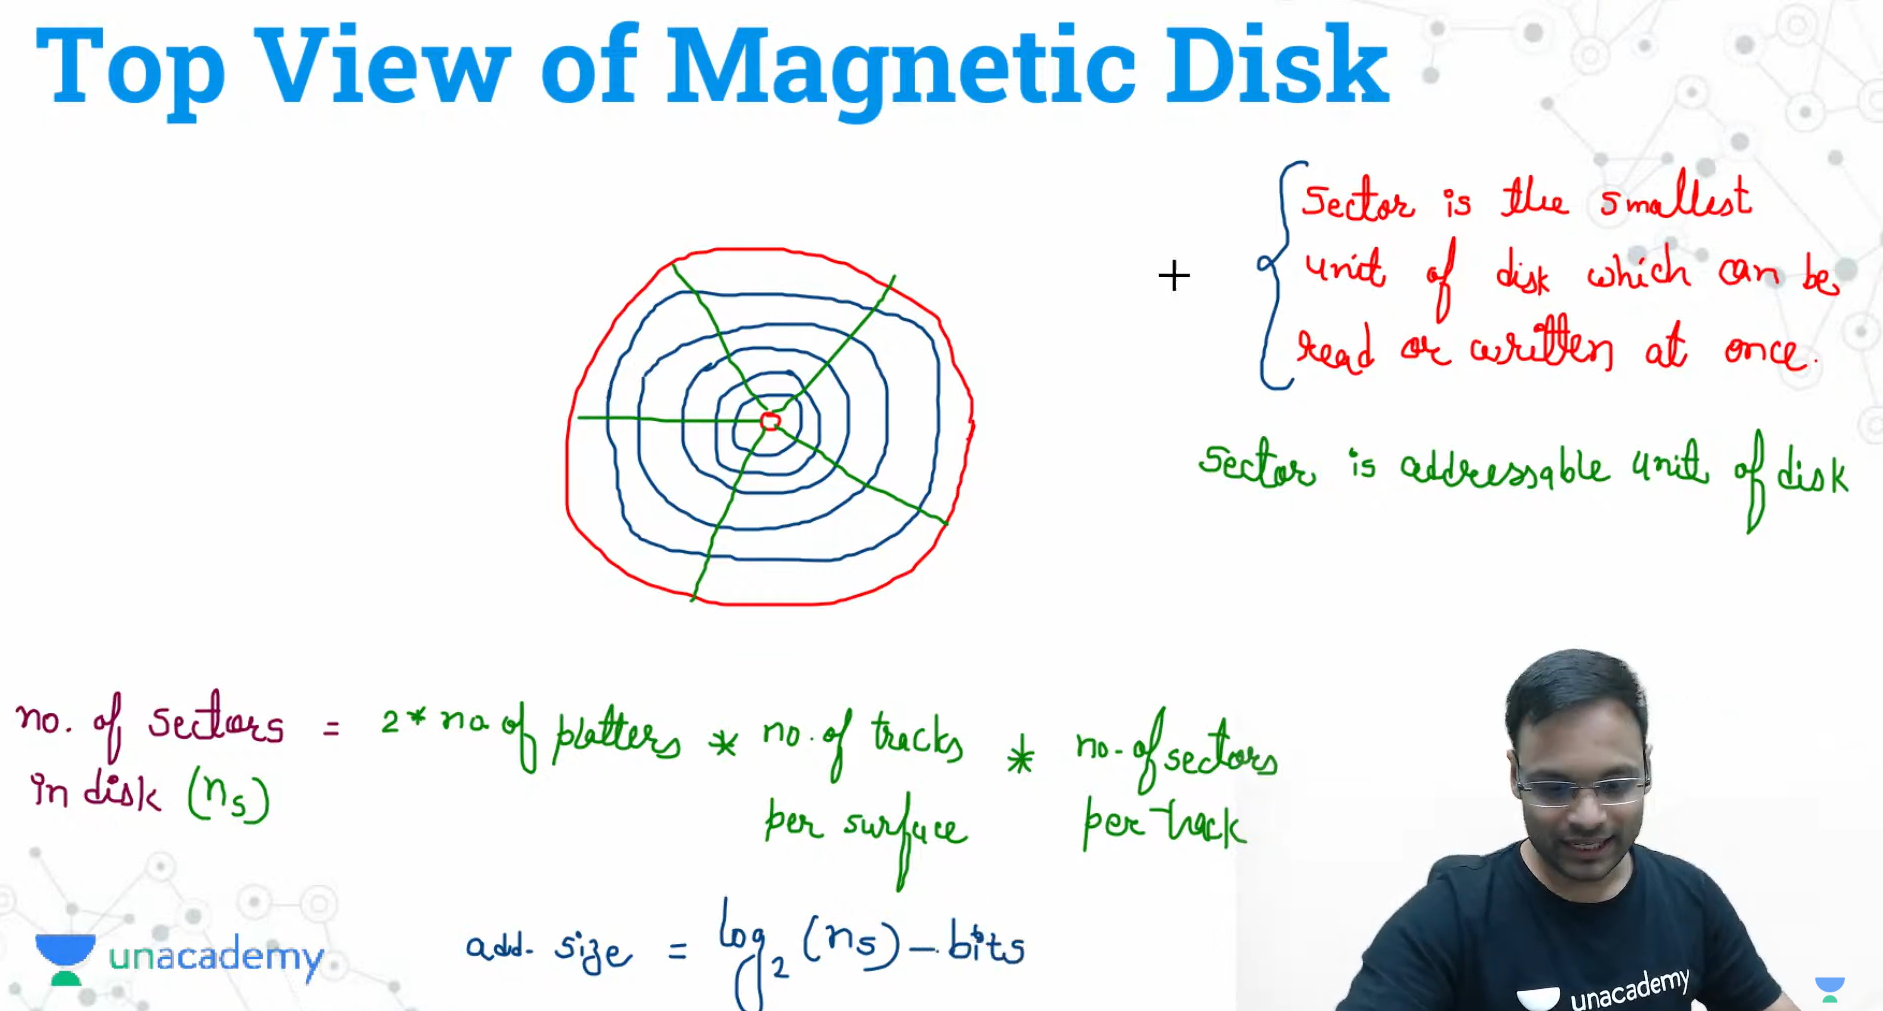 Top View of Magnetic Disk
Sector is the smallest
unit of disk which can be
read or written at once.
Sector is addressable unit of disk
no. of sectors = 2 * no of platters * no. of tracks * no. of sectors
in disk (ns) per surface per track
add. size = log2 (ns) - bits
unacademy
unacademy